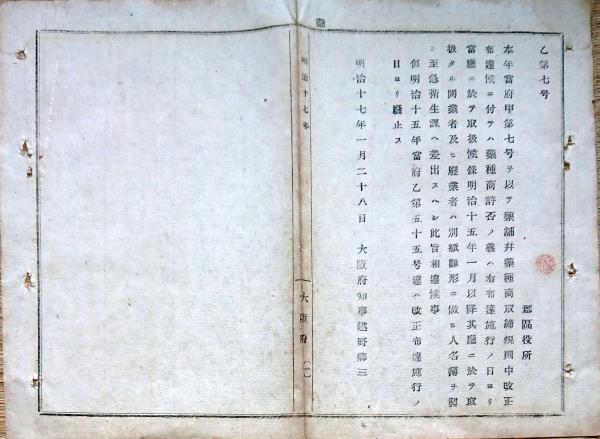 乙第七号
郡區役所
本年當府甲第七号ヲ以テ藥舗幷藥種商取締規則中改正
布達候ニ付テハ藥種商許否ノ義ハ右布達施行ノ日ヨリ
當廳ニ於テ取扱候條明治十五年一月以降其廳ニ於テ取
扱タル開業者及ヒ廢業者ハ別紙雛形ニ倣ヒ人名簿ヲ製
シ至急衛生課ヘ差出スヘシ此旨相達候事
但明治十五年當府乙第五十五号達ハ改正布達施行ノ
日ヨリ廢止ス
明治十七年一月二十八日 大阪府知事建野郷三
明治十七年
大阪府 (一)